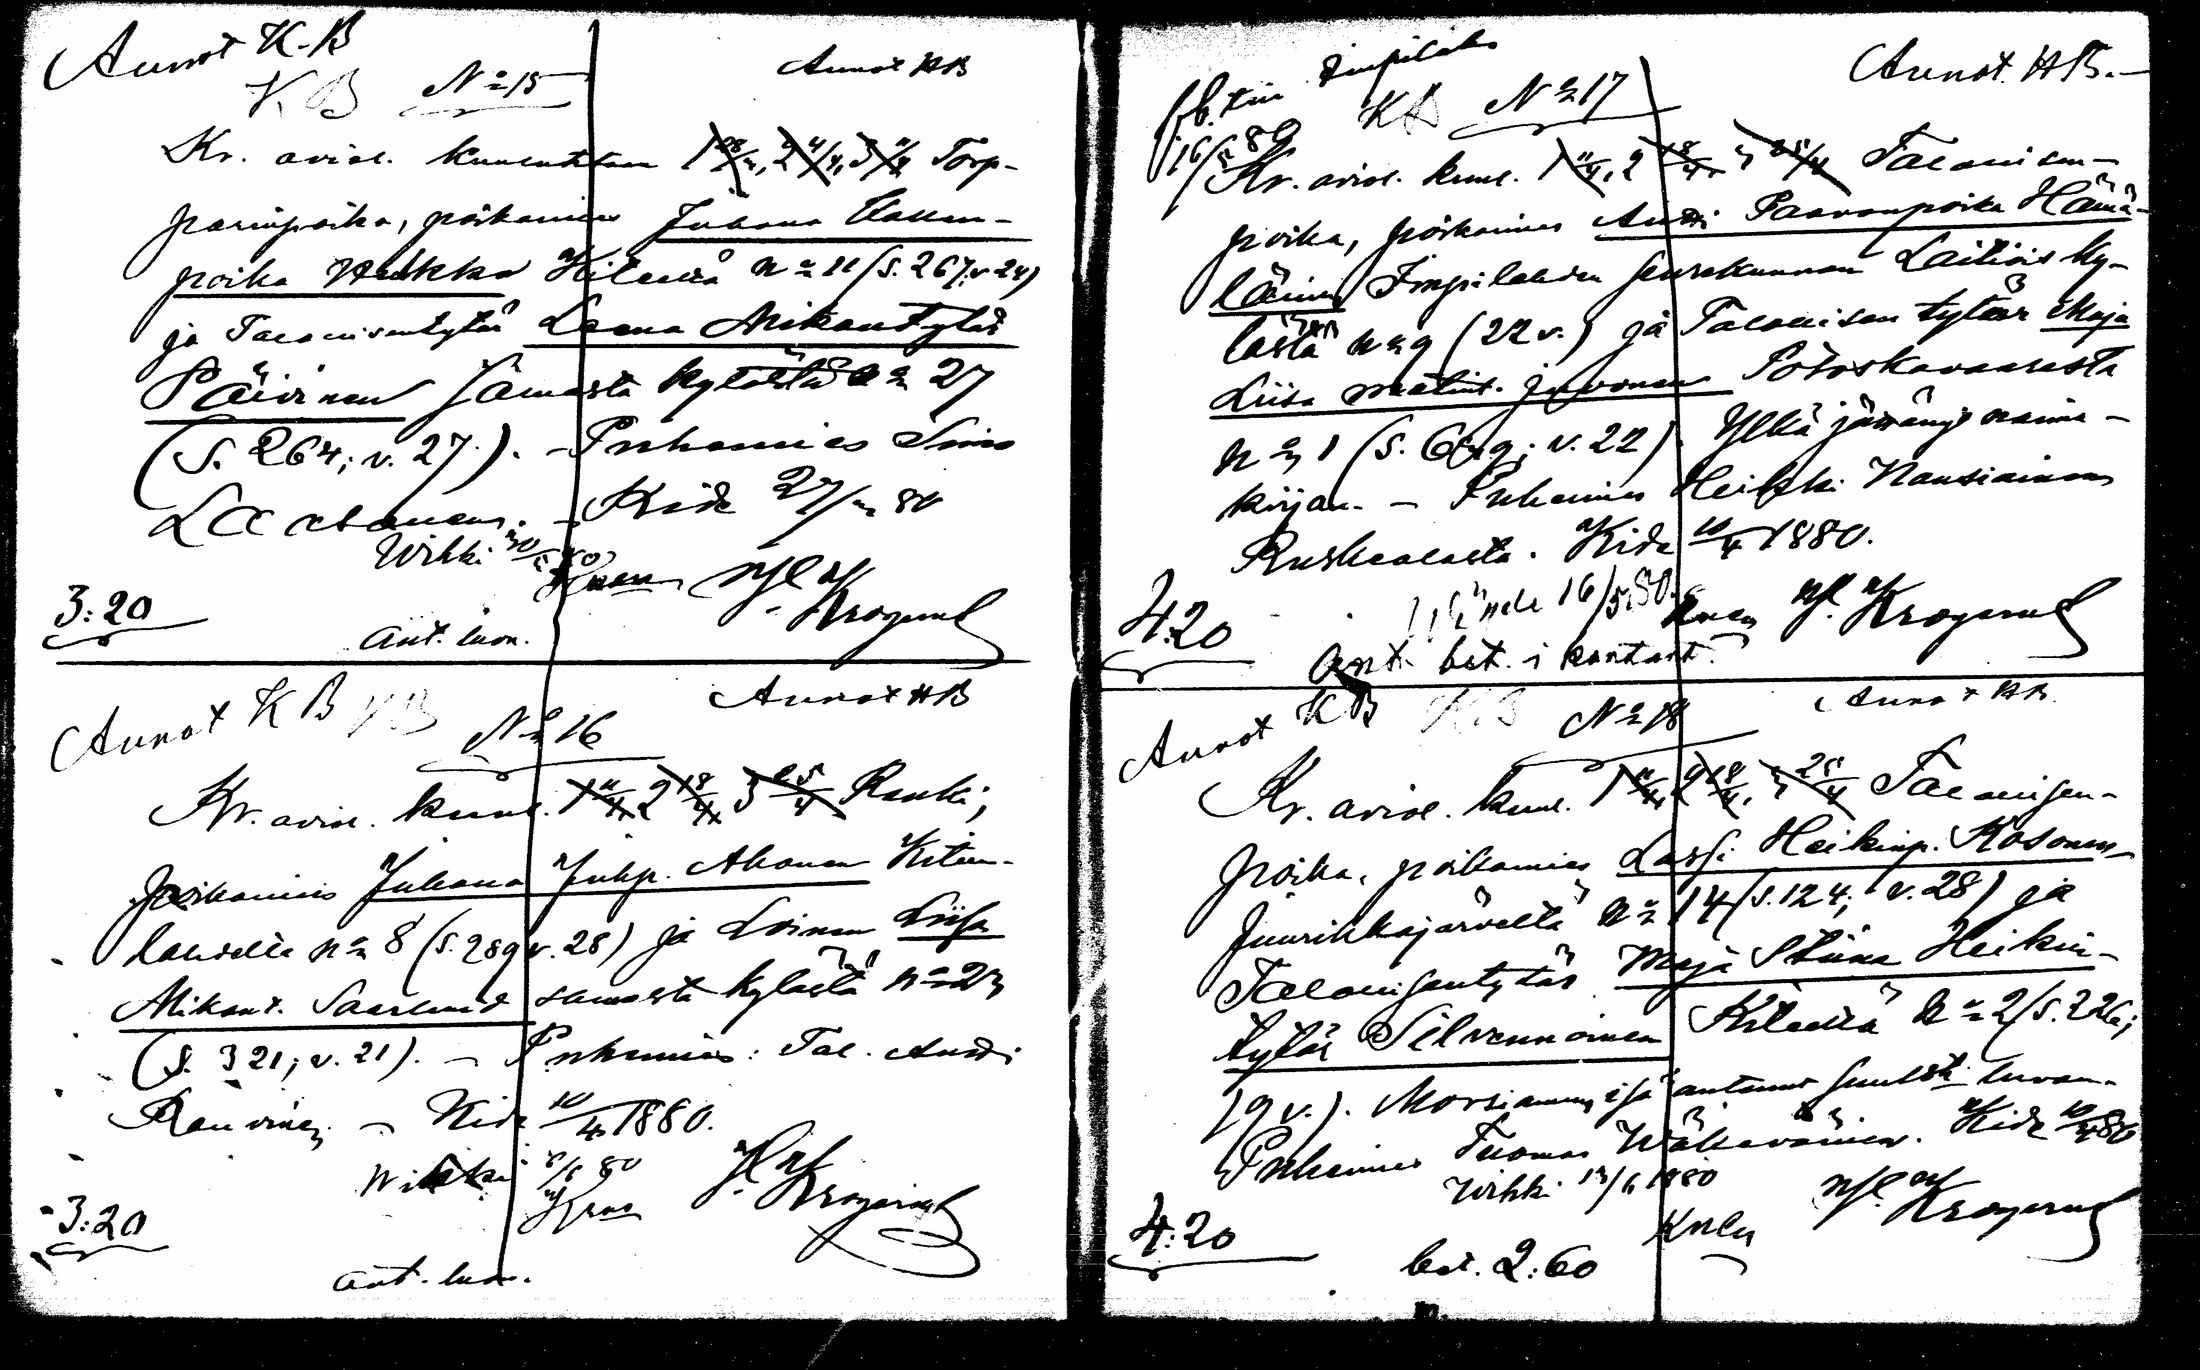 Annot K-B
Annot HB
KB N:o 15
Kr. aviol. kuulutetaan 1 28/3, 2 4/4, 3 11/4 Torp-
parinpoika, poikamies Juhana
poika Hukka Kiteeltä n:o 11 (S. 267; v. 24)
ja Talonisentytär Leena Mikontytär
Päivinen samasta kylästä n:o 27
(S. 264; v. 27). - Puhemies Simo
Kide 27/3 80
Wihki
Krogerus
3:20
ant. luon.
Annot KB KB
Annot HB
N:o 16
Kr. aviol. kuul. 1 11/4 2 18/4 3 25/4 Renki,
poikamies Juhana Juhp. Ahonen Kiteen-
lahdelta n:o 8 (S. 289 v. 28) ja Loinen Liisa
Mikont. samasta kylästä n:o 23
(S. 321; v. 21). - Puhemies: Tal. Antti
- Kide 10/4 1880.
Wihki 6/6 80
Krogerus
3:20
ant. luon.
Annot HB.
KB N:o 17
Kr. aviol. kuul. 1 11/4, 2 18/4, 3 25/4 Talonisen-
poika, poikamies Antti Paavonpoika Hämä-
läinen Impilahden seurakunnan Laitiois ky-
lästä n:o 9 (22 v.) ja Talonisen tytär Maja
Liisa Matint. Juvonen Potoskavaarasta
n:o 1 (S. v. 22)
kirjan. - Puhemies Heikki Nousiainen
Ruskealasta. Kide 10/4 1880.
16/5 80.
Krogerus
4:20
Ant. bet. i kontant.
Annot KB KB
N:o 18
Annot HB.
Kr. aviol. kuul. 1 11/4, 2 18/4, 3 25/4 Talonisen-
poika, poikamies Lassi Heikinp. Kosonen
Juurikkajärveltä n:o 14 (S. 124; v. 28) ja
Talonisentytär Maja Stiina Heikin-
tytär Silvennoinen Kiteeltä n:o 2 (S. 226;
19 v.). Morsiamen isä antanut suullisti luvan.
Puhemies Tuomas Wäkeväinen. Kide 10/4 80
Wihki 13/6 1880
Krogerus
4:20
bet. 2:60